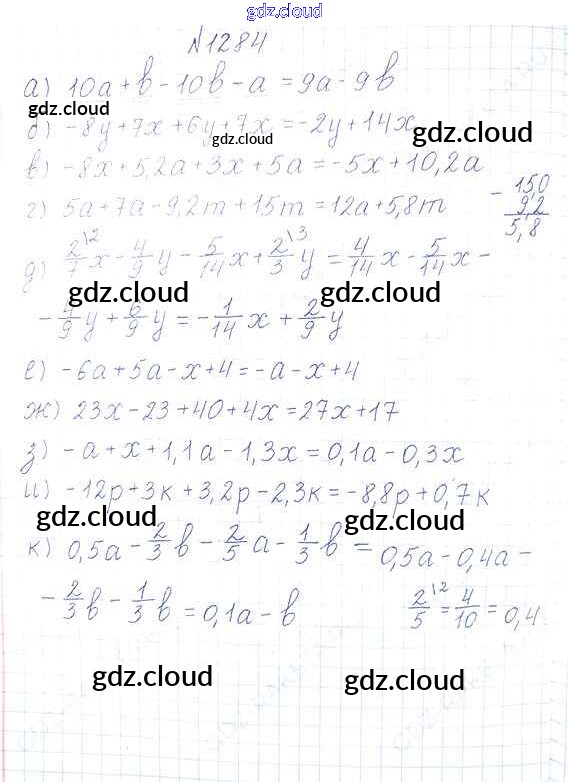 gdz.cloud
№1284
а) 10a + b - 10b - a = 9a - 9b
gdz.cloud
б) -8y + 7x + 6y + 7x = -2y + 14x
gdz.cloud
gdz.cloud
в) -8x + 5,2a + 3x + 5a = -5x + 10,2a
г) 5a + 7a - 9,2m + 15m = 12a + 5,8m
- 15,0
9,2
5,8
д) 2/7 \2 x - 4/9 y - 5/14 x + 2/3 \3 y = 4/14 x - 5/14 x -
gdz.cloud
gdz.cloud
- 4/9 y + 6/9 y = - 1/14 x + 2/9 y
е) -6a + 5a - x + 4 = -a - x + 4
ж) 23x - 23 + 40 + 4x = 27x + 17
з) -a + x + 1,1a - 1,3x = 0,1a - 0,3x
и) -12p + 3к + 3,2p - 2,3к = -8,8p + 0,7к
gdz.cloud
gdz.cloud
к) 0,5a - 2/3 b - 2/5 a - 1/3 b = 0,5a - 0,4a -
- 2/3 b - 1/3 b = 0,1a - b
2/5 \2 = 4/10 = 0,4
gdz.cloud
gdz.cloud